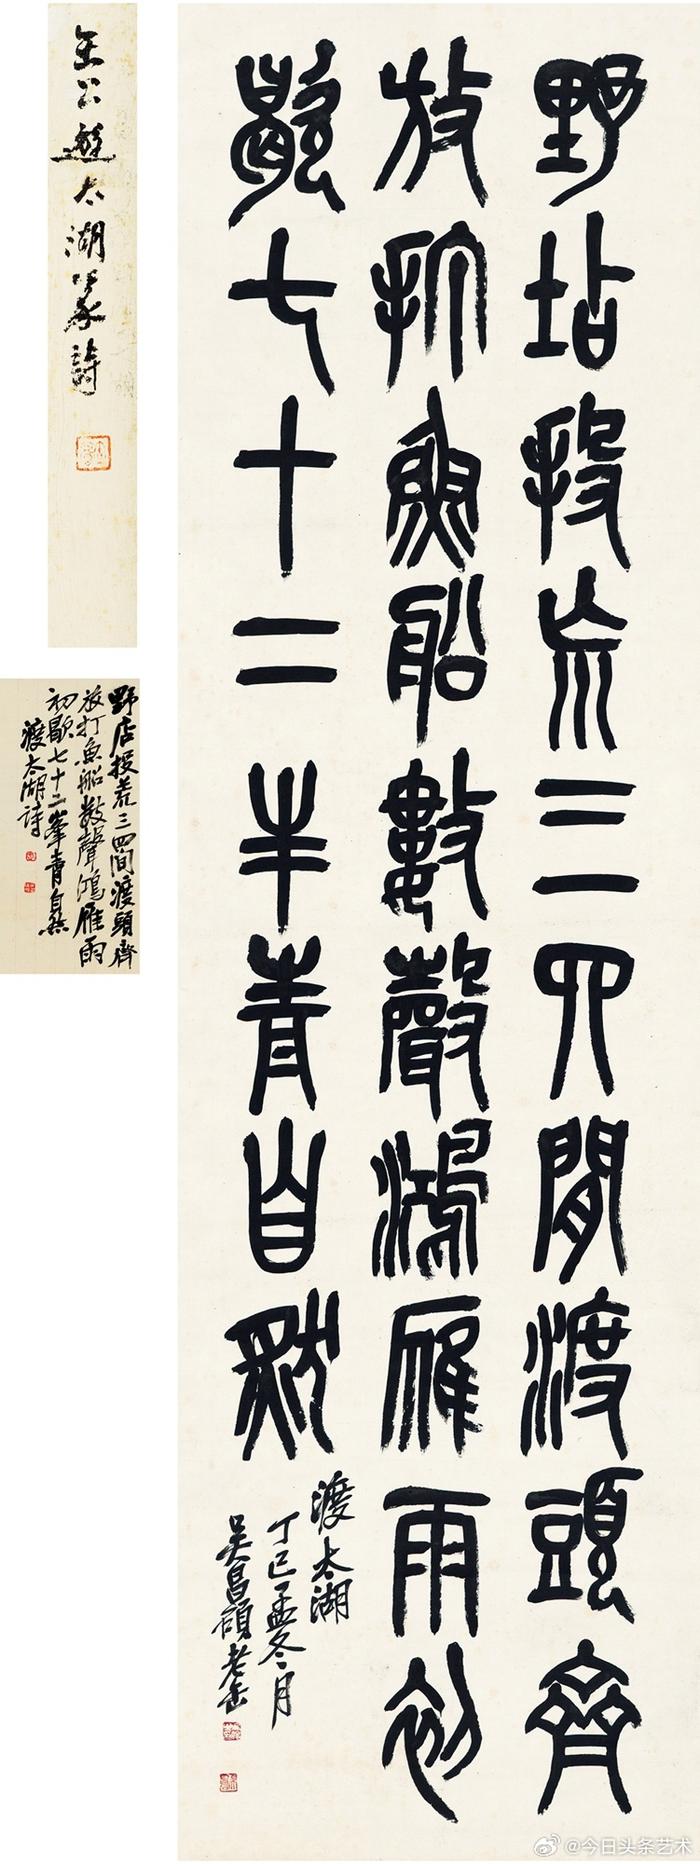 野坫投㐬三四閒渡頭齊
放打魚船數聲鴻雁雨初
歇七十二丰青自然
渡太湖
丁巳孟冬月
吳昌碩老缶
缶公遊太湖篆詩
野店投荒三四間渡頭齊
放打魚船數聲鴻雁雨
初歇七十二峯青自然
渡太湖詩
@今日头条艺术